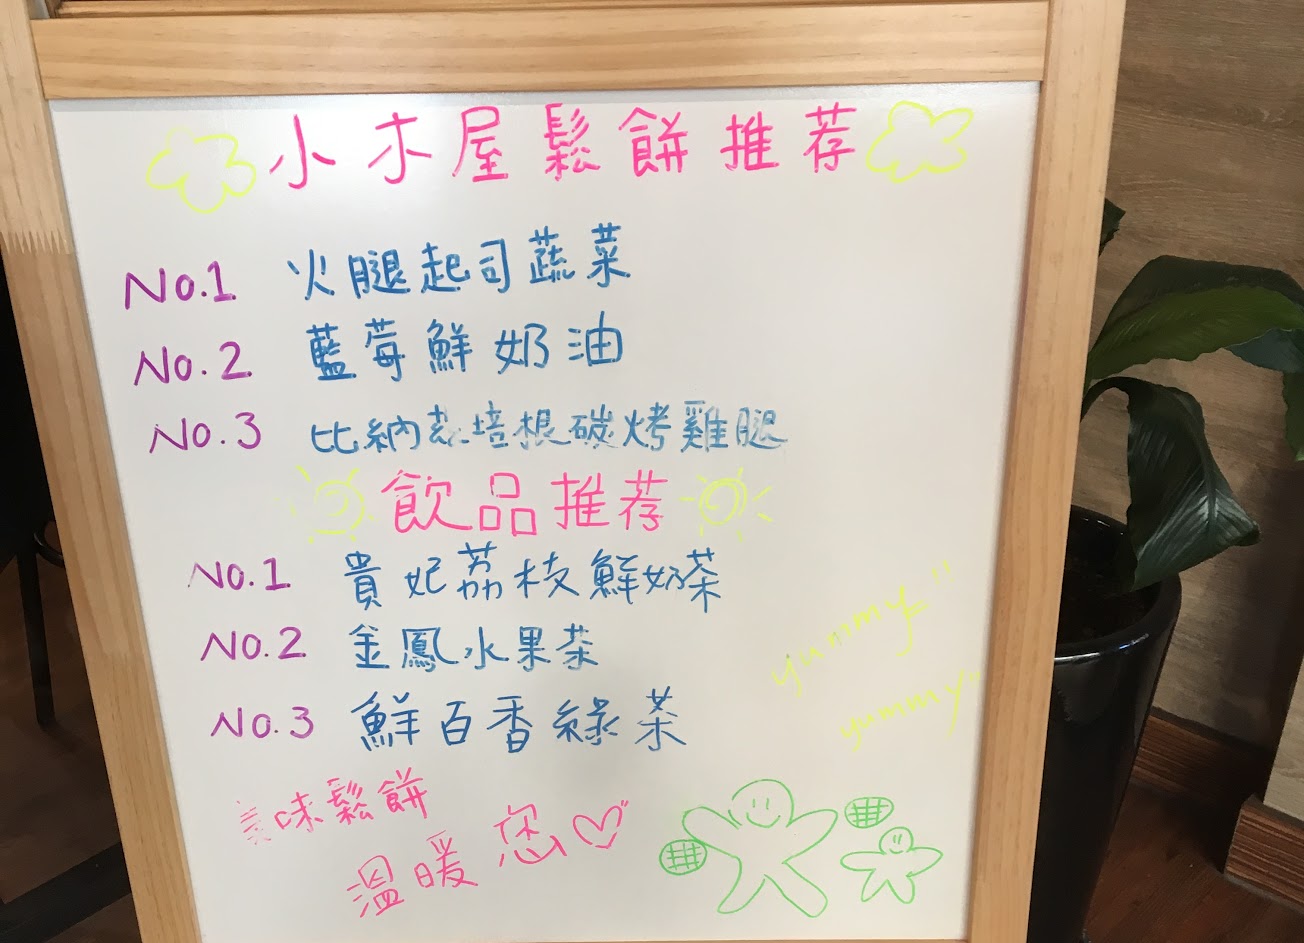 小木屋鬆餅推荐
No.1 火腿起司蔬菜
No.2 藍莓鮮奶油
No.3 比納菠培根碳烤雞腿
飲品推荐
No.1 貴妃荔枝鮮奶茶
No.2 金鳳水果茶
No.3 鮮百香綠茶
yummy!!
yummy!!
美味鬆餅
溫暖您